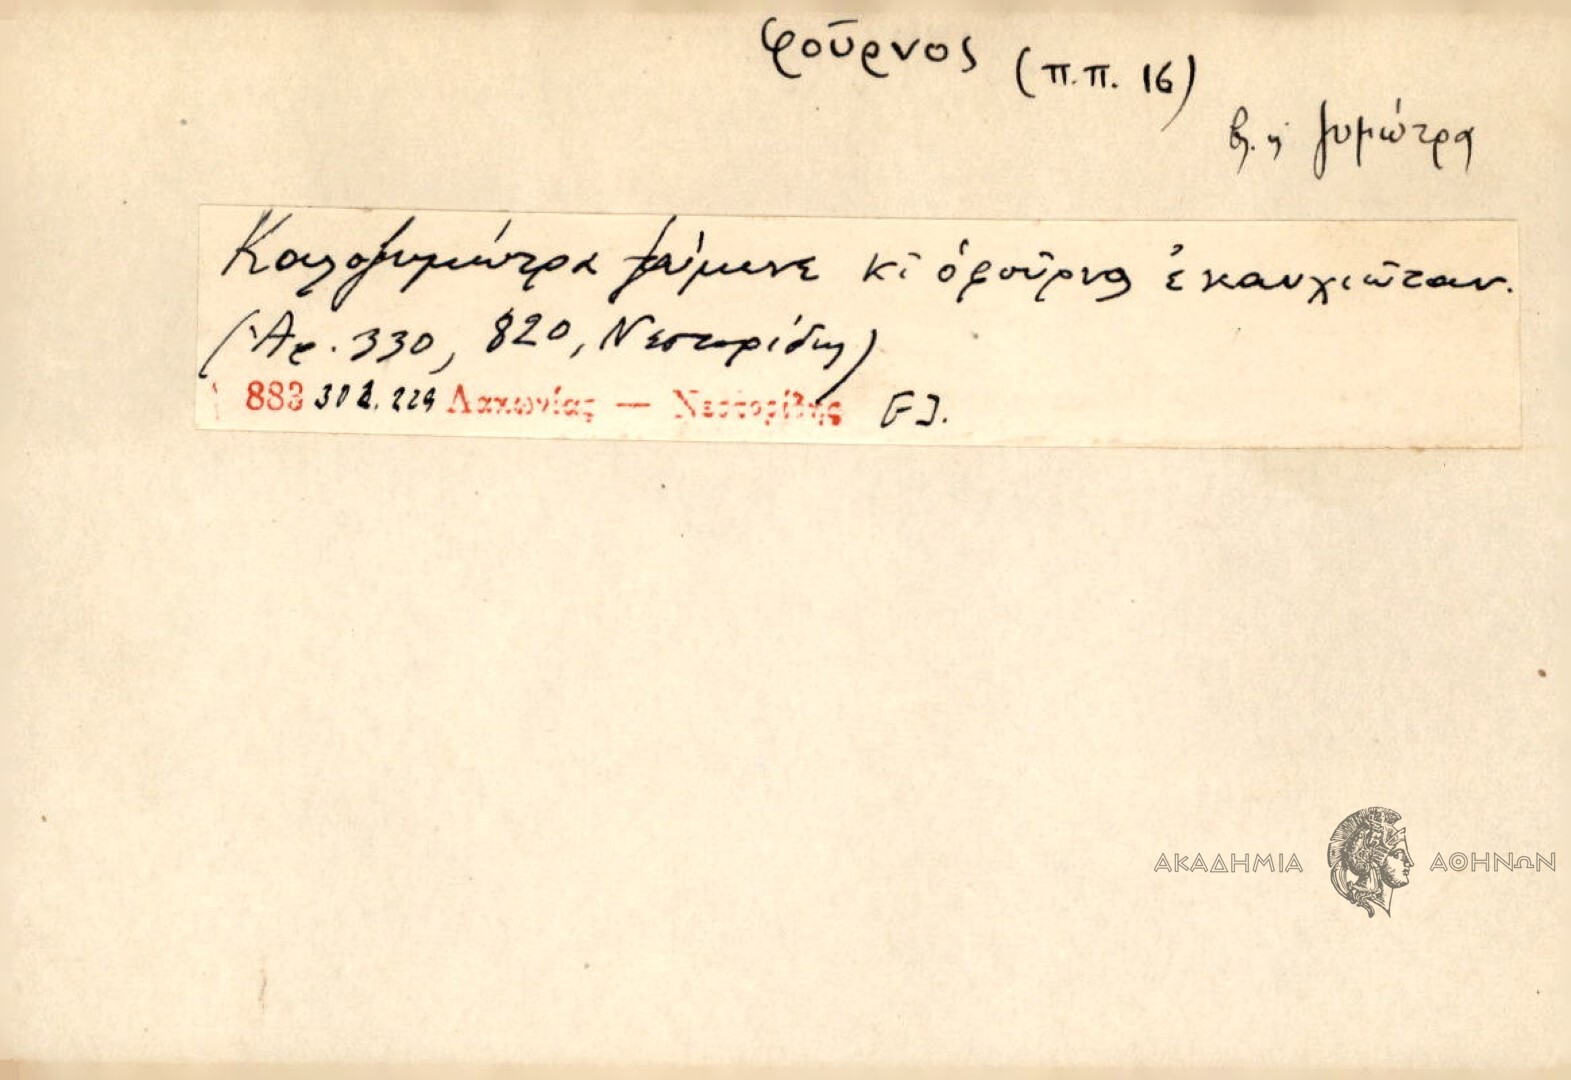 φοῦρνος (π.π. 16)
βλ. ζυμώτρα
Καλοζυμώτρα ζύμωνε κῑ ὁ φοῦρνος ἐκαυχιῶταν.
(Ἀρ. 330, 820, Νεστορίδης)
883 301. 229 Λακωνίας — Νεστορίδης
ΑΚΑΔΗΜΙΑ ΑΘΗΝΩΝ